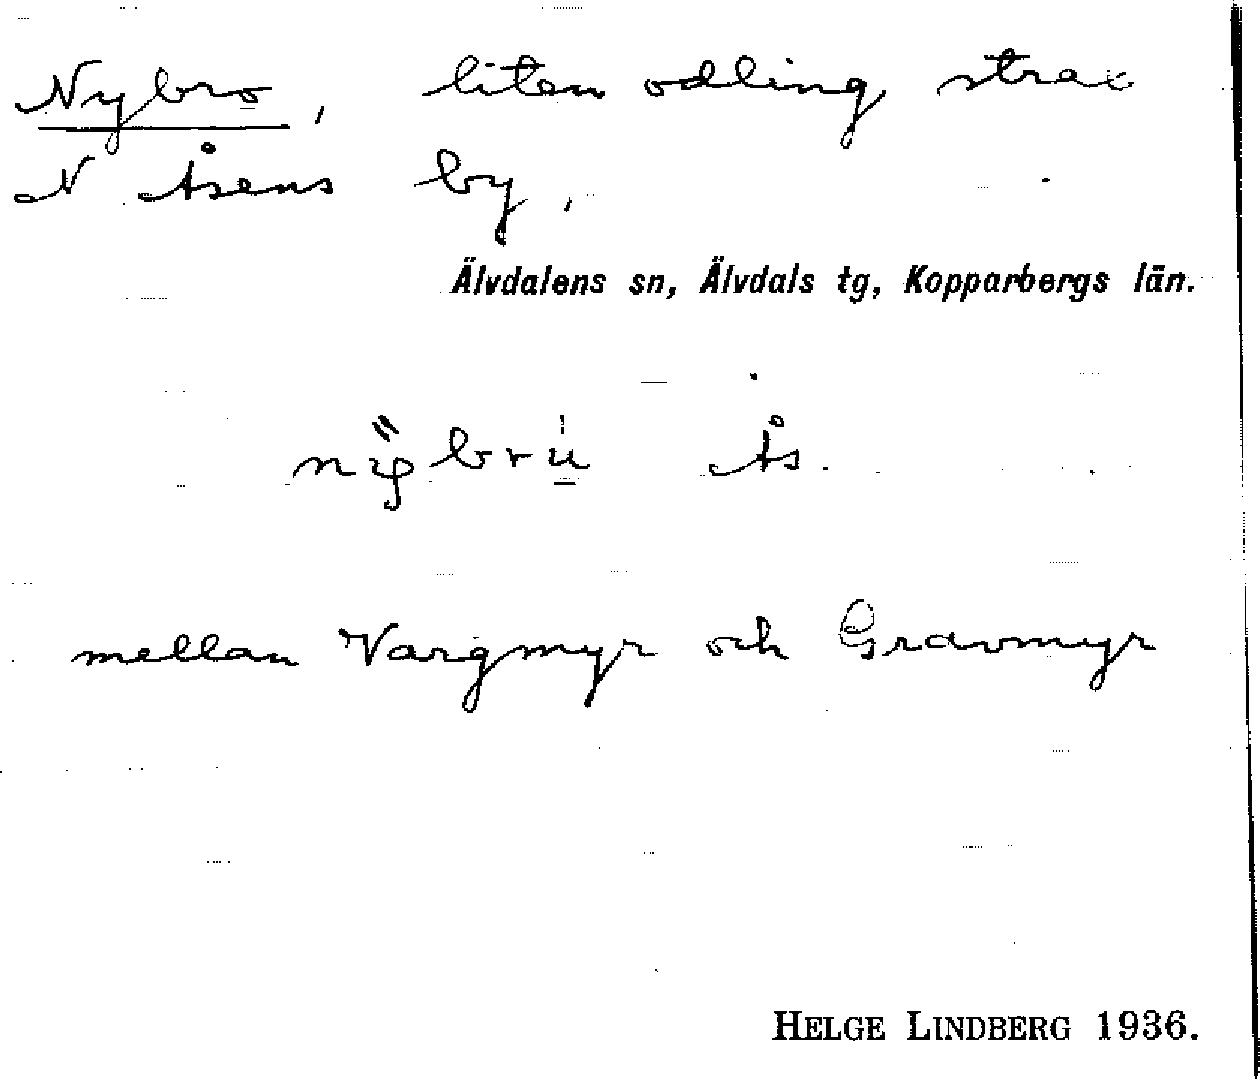 Nybro, liten odling strax
N Åsens by,
Älvdalens sn, Älvdals tg, Kopparbergs län.
Ås.
mellan Vargmyr och Gravmyr
HELGE LINDBERG 1936.